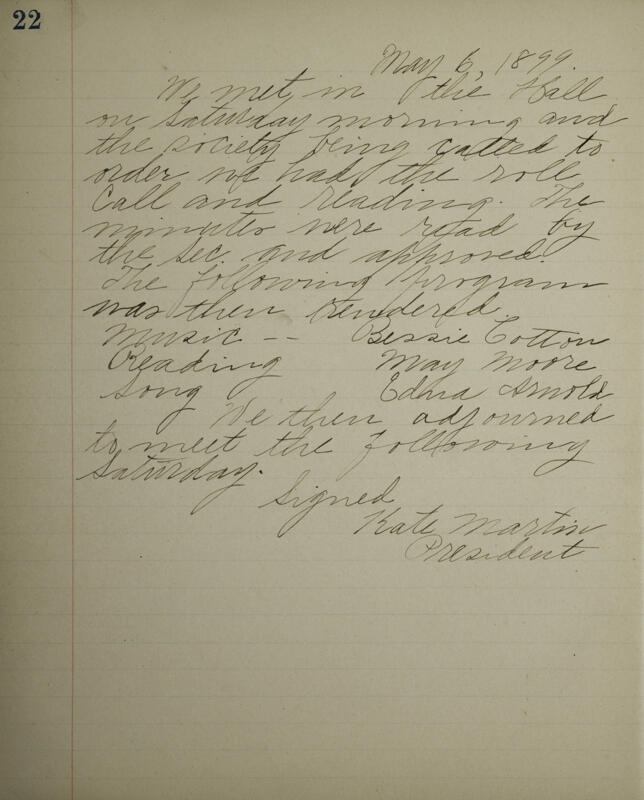 22
May 6, 1899.
We met in the Hall
on Saturday morning and
the society being called to
order we had the roll
call and reading. The
minutes were read by
the Sec. and approved.
The following program
was then rendered.
Music -- Bessie Cotton
Reading May Moore
Song Edna Arnold
We then adjourned
to meet the following
Saturday.
Signed
Kate Martin
President